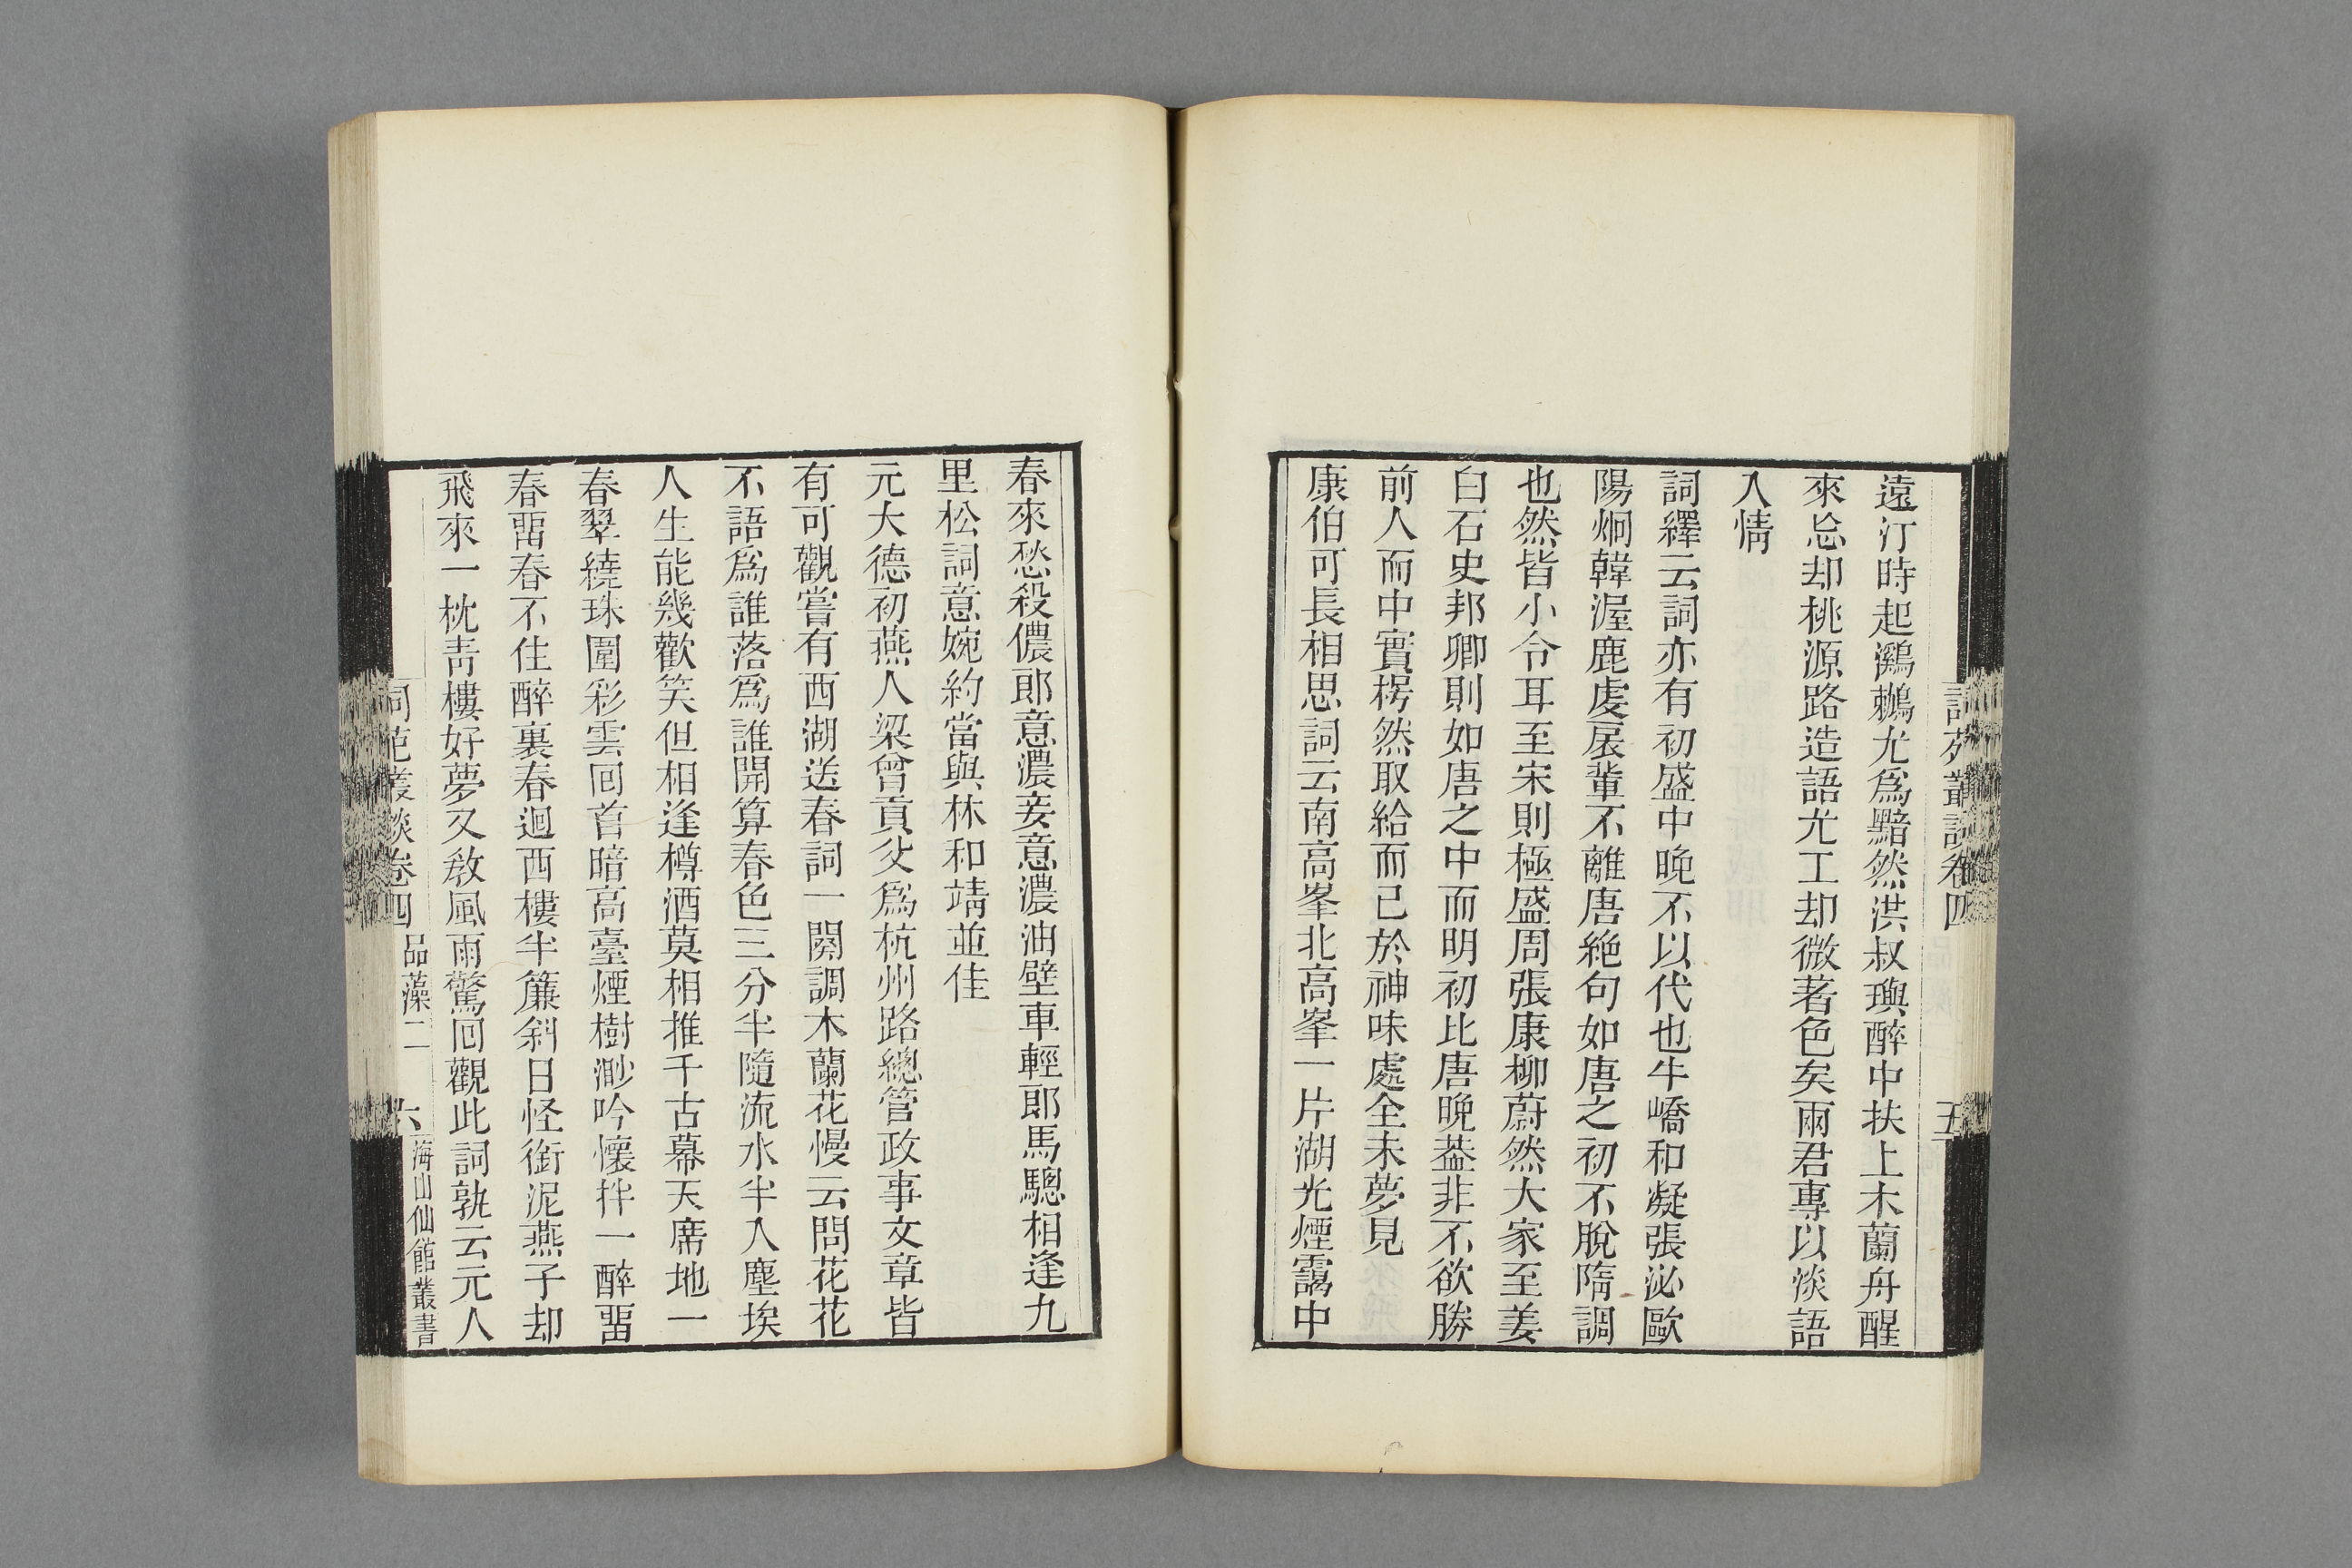 遠汀時起鸂鶒尤爲黯然洪叔璵醉中扶上木蘭舟醒
來忘却桃源路造語尤工却微著色矣兩君專以淡語
入情
詞繹云詞亦有初盛中晚不以代也牛嶠和凝張泌歐
陽炯韓渥鹿虔扆輩不離唐絶句如唐之初不脫隋調
也然皆小令耳至宋則極盛周張康柳蔚然大家至姜
白石史邦卿則如唐之中而明初比唐晚葢非不欲勝
前人而中實枵然取給而已於神味處全未夢見
康伯可長相思詞云南高峯北高峯一片湖光煙靄中
春來愁殺儂郎意濃妾意濃油壁車輕郎馬驄相逢九
里松詞意婉約當與林和靖並佳
元大德初燕人梁曾貢父爲杭州路總管政事文章皆
有可觀嘗有西湖送春詞一闋調木蘭花慢云問花花
不語爲誰落爲誰開算春色三分半隨流水半入塵埃
人生能幾歡笑但相逢樽酒莫相推千古幕天席地一
春翠繞珠圍彩雲回首暗高臺煙樹渺吟懷拌一醉畱
春畱春不住醉裏春迴西樓半簾斜日怪銜泥燕子却
飛來一枕靑樓好夢又敎風雨驚回觀此詞孰云元人
詞苑叢談卷四 品藻二 六 海山仙館叢書